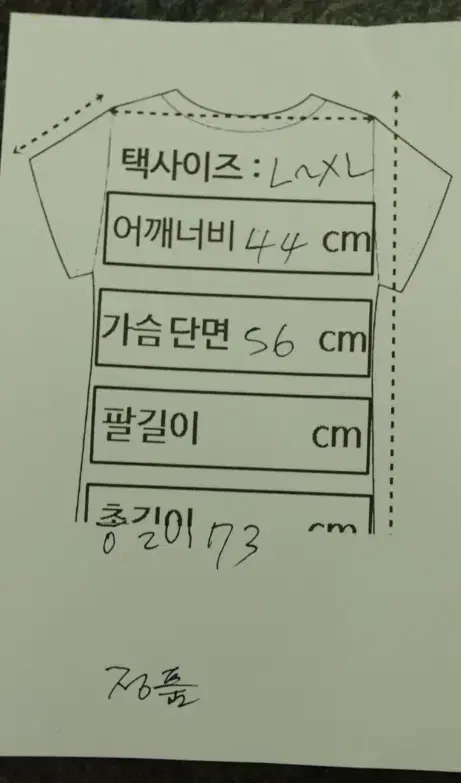 택사이즈 : L~XL
어깨너비 44 cm
가슴단면 56 cm
팔길이 cm
총길이 73 cm
정품